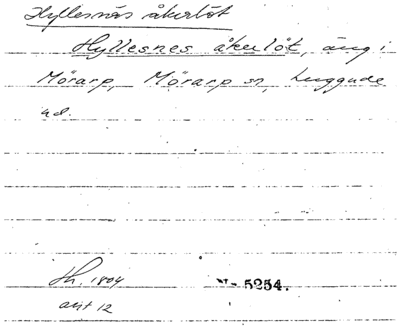 Hyllesnäs åkerlöt
Hyllesnes åkerlöt, äng i
Mörarp, Mörarp sn, Luggude
hd.
Sh. 1804
akt 12
N- 5254.